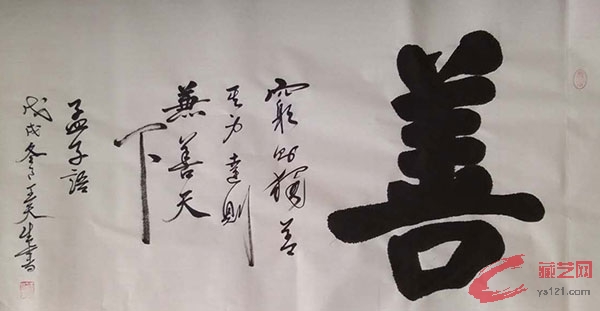 善
窮則獨善
其身達則
兼善天
下
孟子語
戊戌冬王天生書
藏艺网
ys121.com